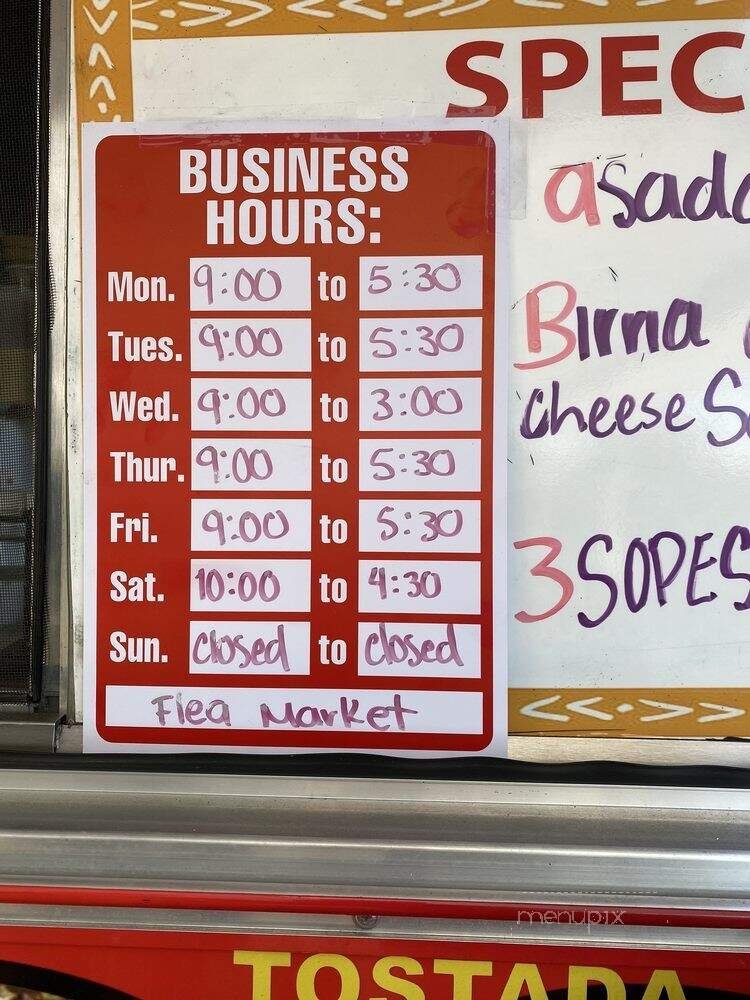 BUSINESS
HOURS:
Mon. 9:00 to 5:30
Tues. 9:00 to 5:30
Wed. 9:00 to 3:00
Thur. 9:00 to 5:30
Fri. 9:00 to 5:30
Sat. 10:00 to 4:30
Sun. closed to closed
Flea Market
SPEC
asada
Birna
cheese S
3 SOPES
menupix
TOSTADA